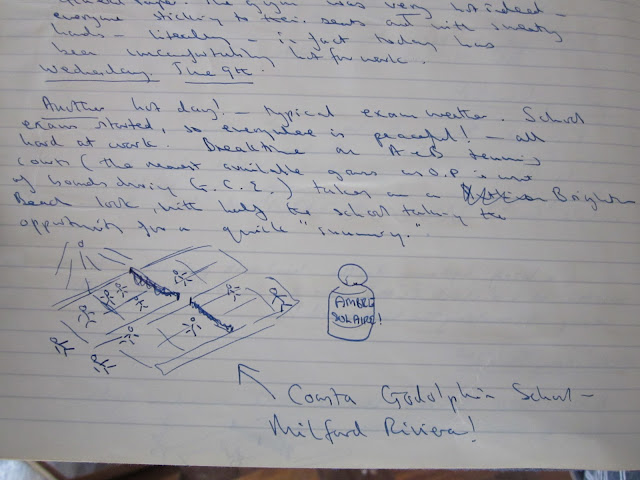 paper. The gym was very hot indeed –
everyone sticking to their seats and with sweaty
hands – literally – in fact today has
been uncomfortably hot for work.
Wednesday June 9th.
Another hot day! – typical exam weather. School
exams started, so everyone is peaceful! – all
hard at work. Breaktime on A+B tennis
courts (the nearest available grass as O.P is out
of bounds during G.C.E.) takes on a Brighton
Beach look, with half the school taking the
opportunity for a quick "sunning".
AMBRE
SOLAIRE!
Costa Godolphin School –
Milford Riviera!